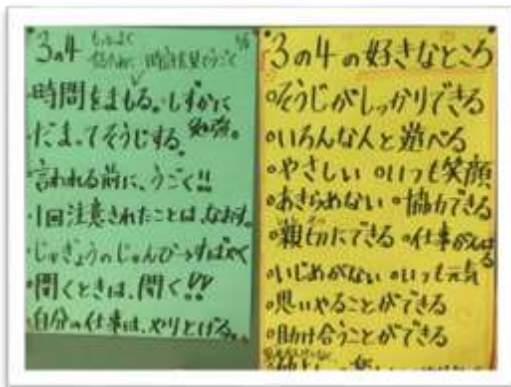 3の4
時計を見てうごく
・時間をまもる。しずかに
だまってそうじする。
・言われる前に、うごく!!
・1回注意されたことは、なおす。
・じゅぎょうのじゅんび→すばやく
・聞くときは、聞く!!
・自分の仕事は、やりとげる。
3の4の好きなところ
・そうじがしっかりできる
・いろんな人と遊べる
・やさしい ・いつも笑顔
・あきらめない ・協力できる
・親切にできる ・仕事がんばる
・いじめがない ・いつも元気
・思いやることができる
・助け合うことができる